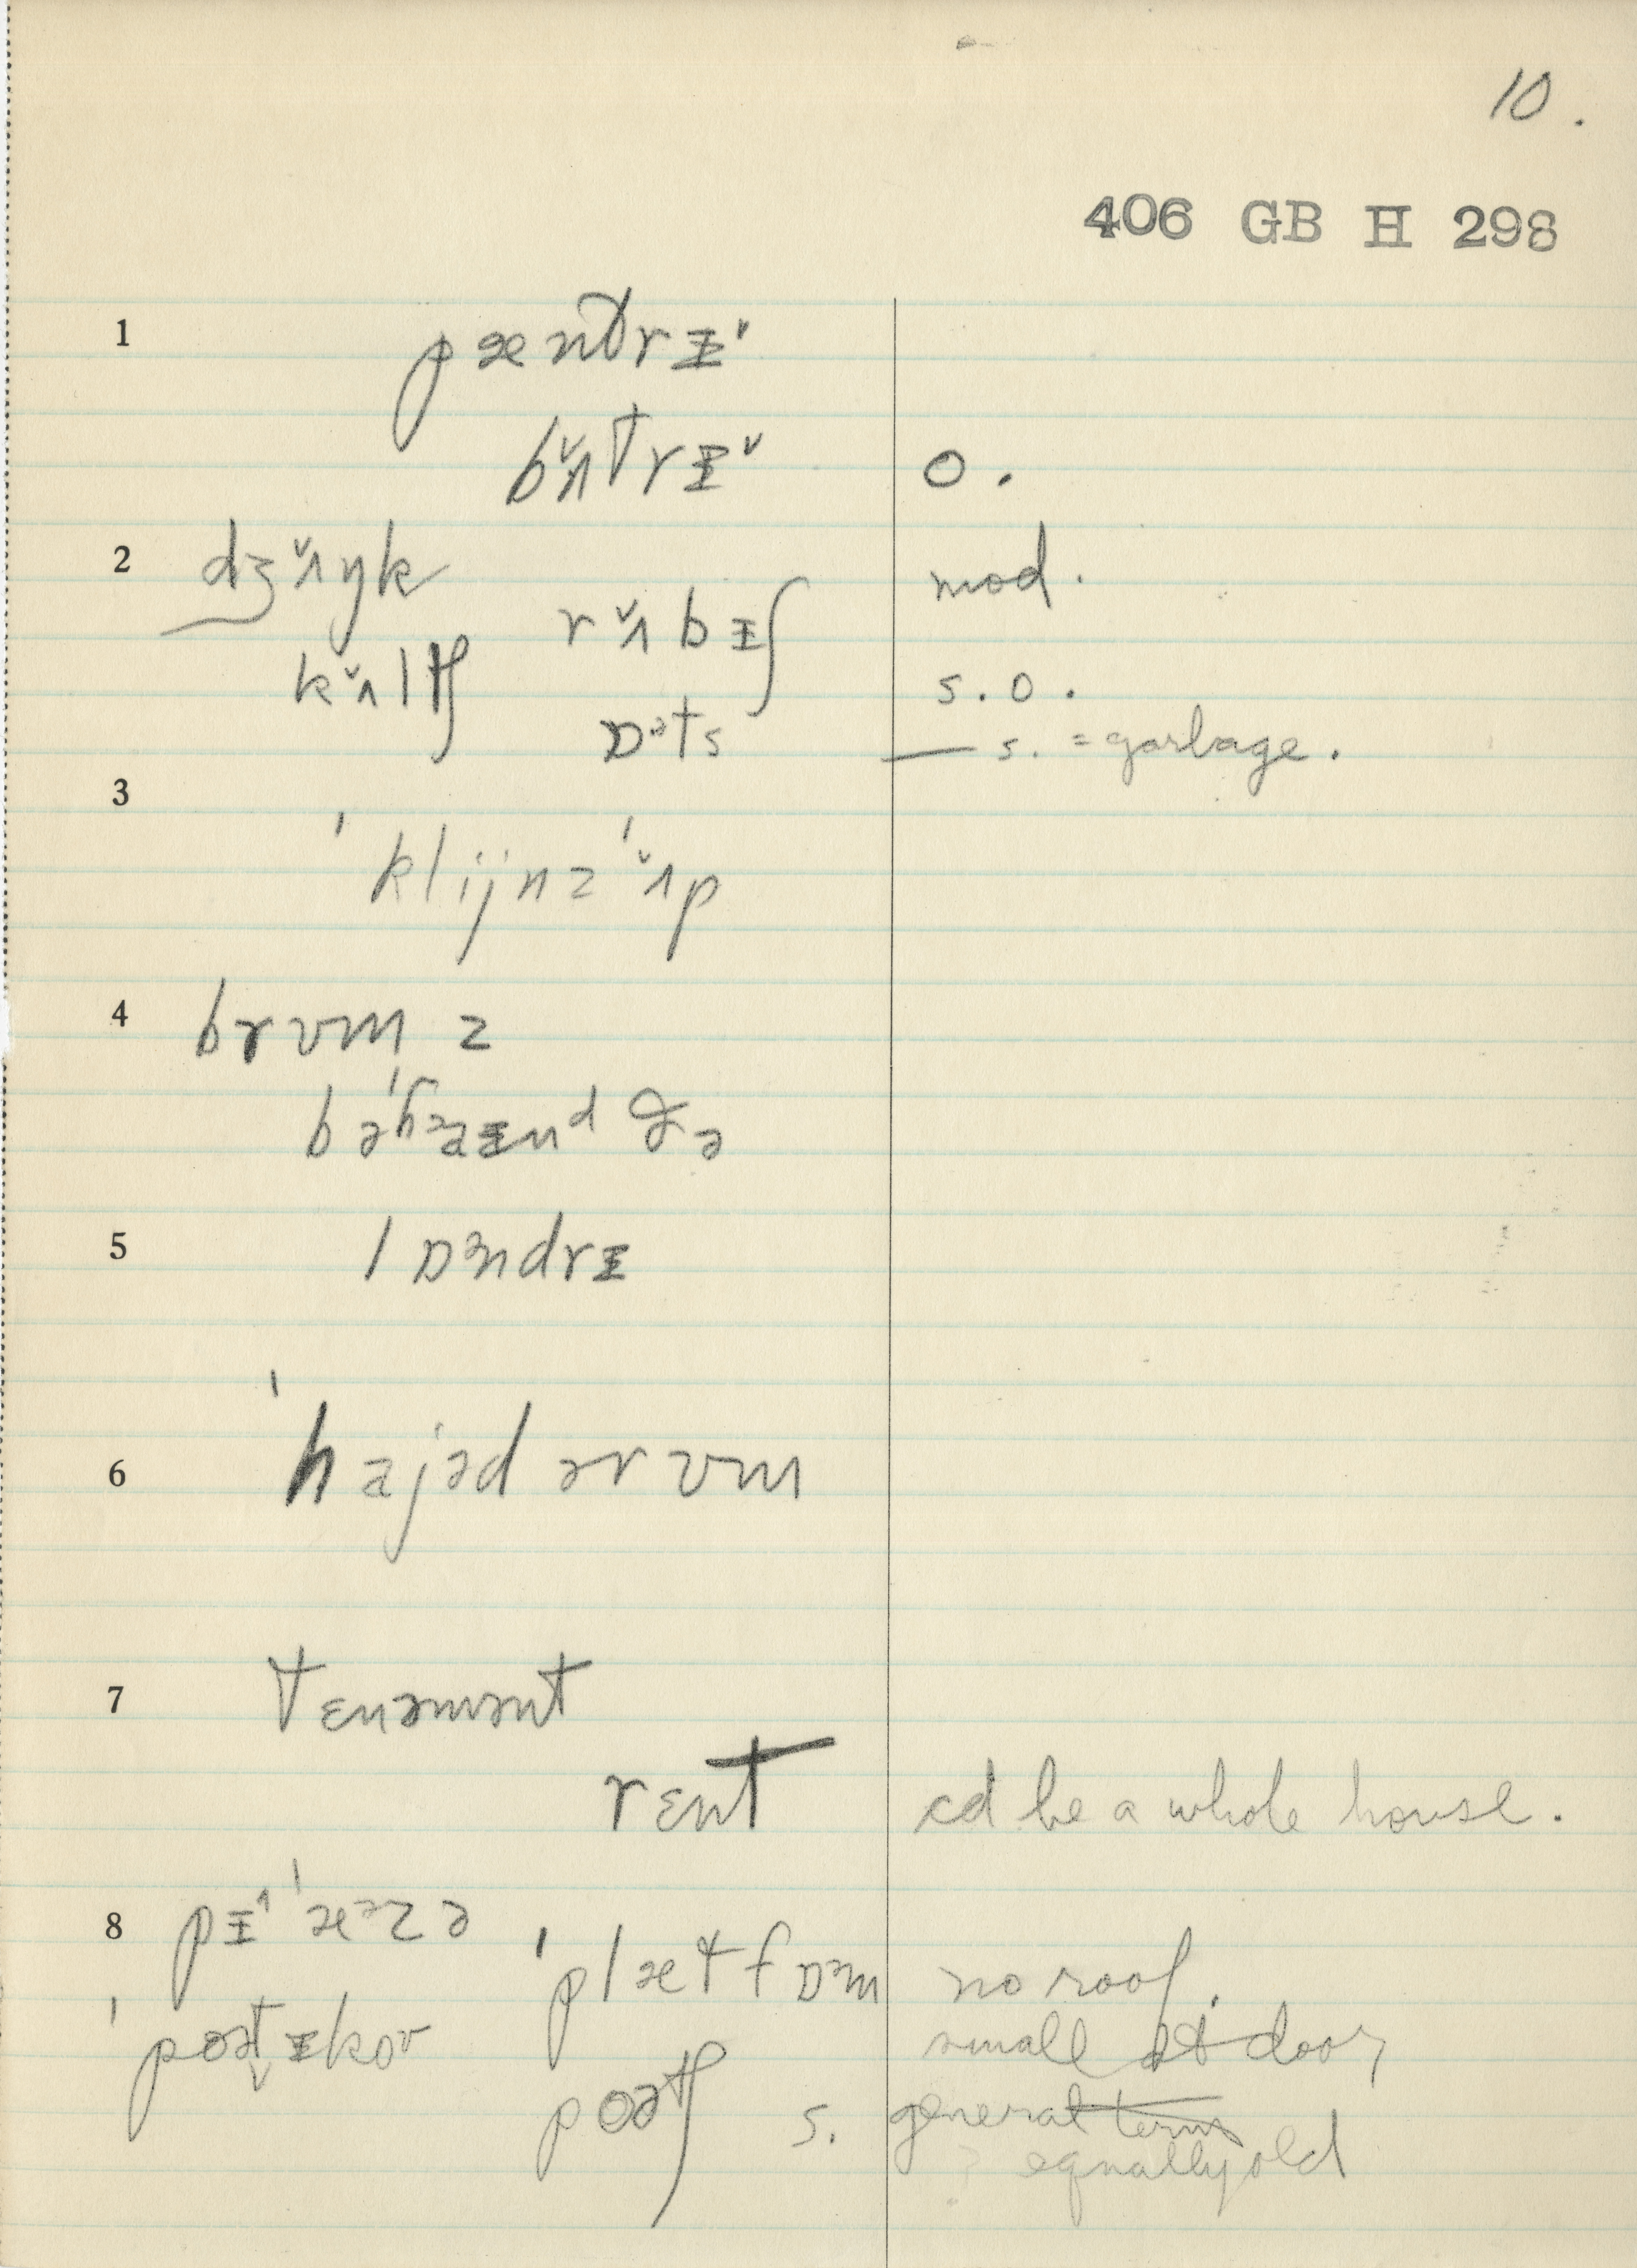 10.
406 GB H 298
1 pæntrɪ˅
bʌ̌trɪ˅ o.
2 dʒʌ̌ŋk mod.
rʌ̌bɪʃ
kʌ̌ltʃ s.o.
ɒᵊts — s. = garbage.
3 ˈklijnz ˈʌ̌p
4 brʊmz
bəˈhaɪnd ðə
5 lɒᵊndrɪ
6 ˈhajəd ərʊm
7 tɛnəmənt
rɛnt cd be a whole house.
8 pɪ˄ˈæᵊzə
ˈplætfɒᵊm no roof.
ˈpoətɪkoʊ small at door
poətʃ s. general term
? equally old